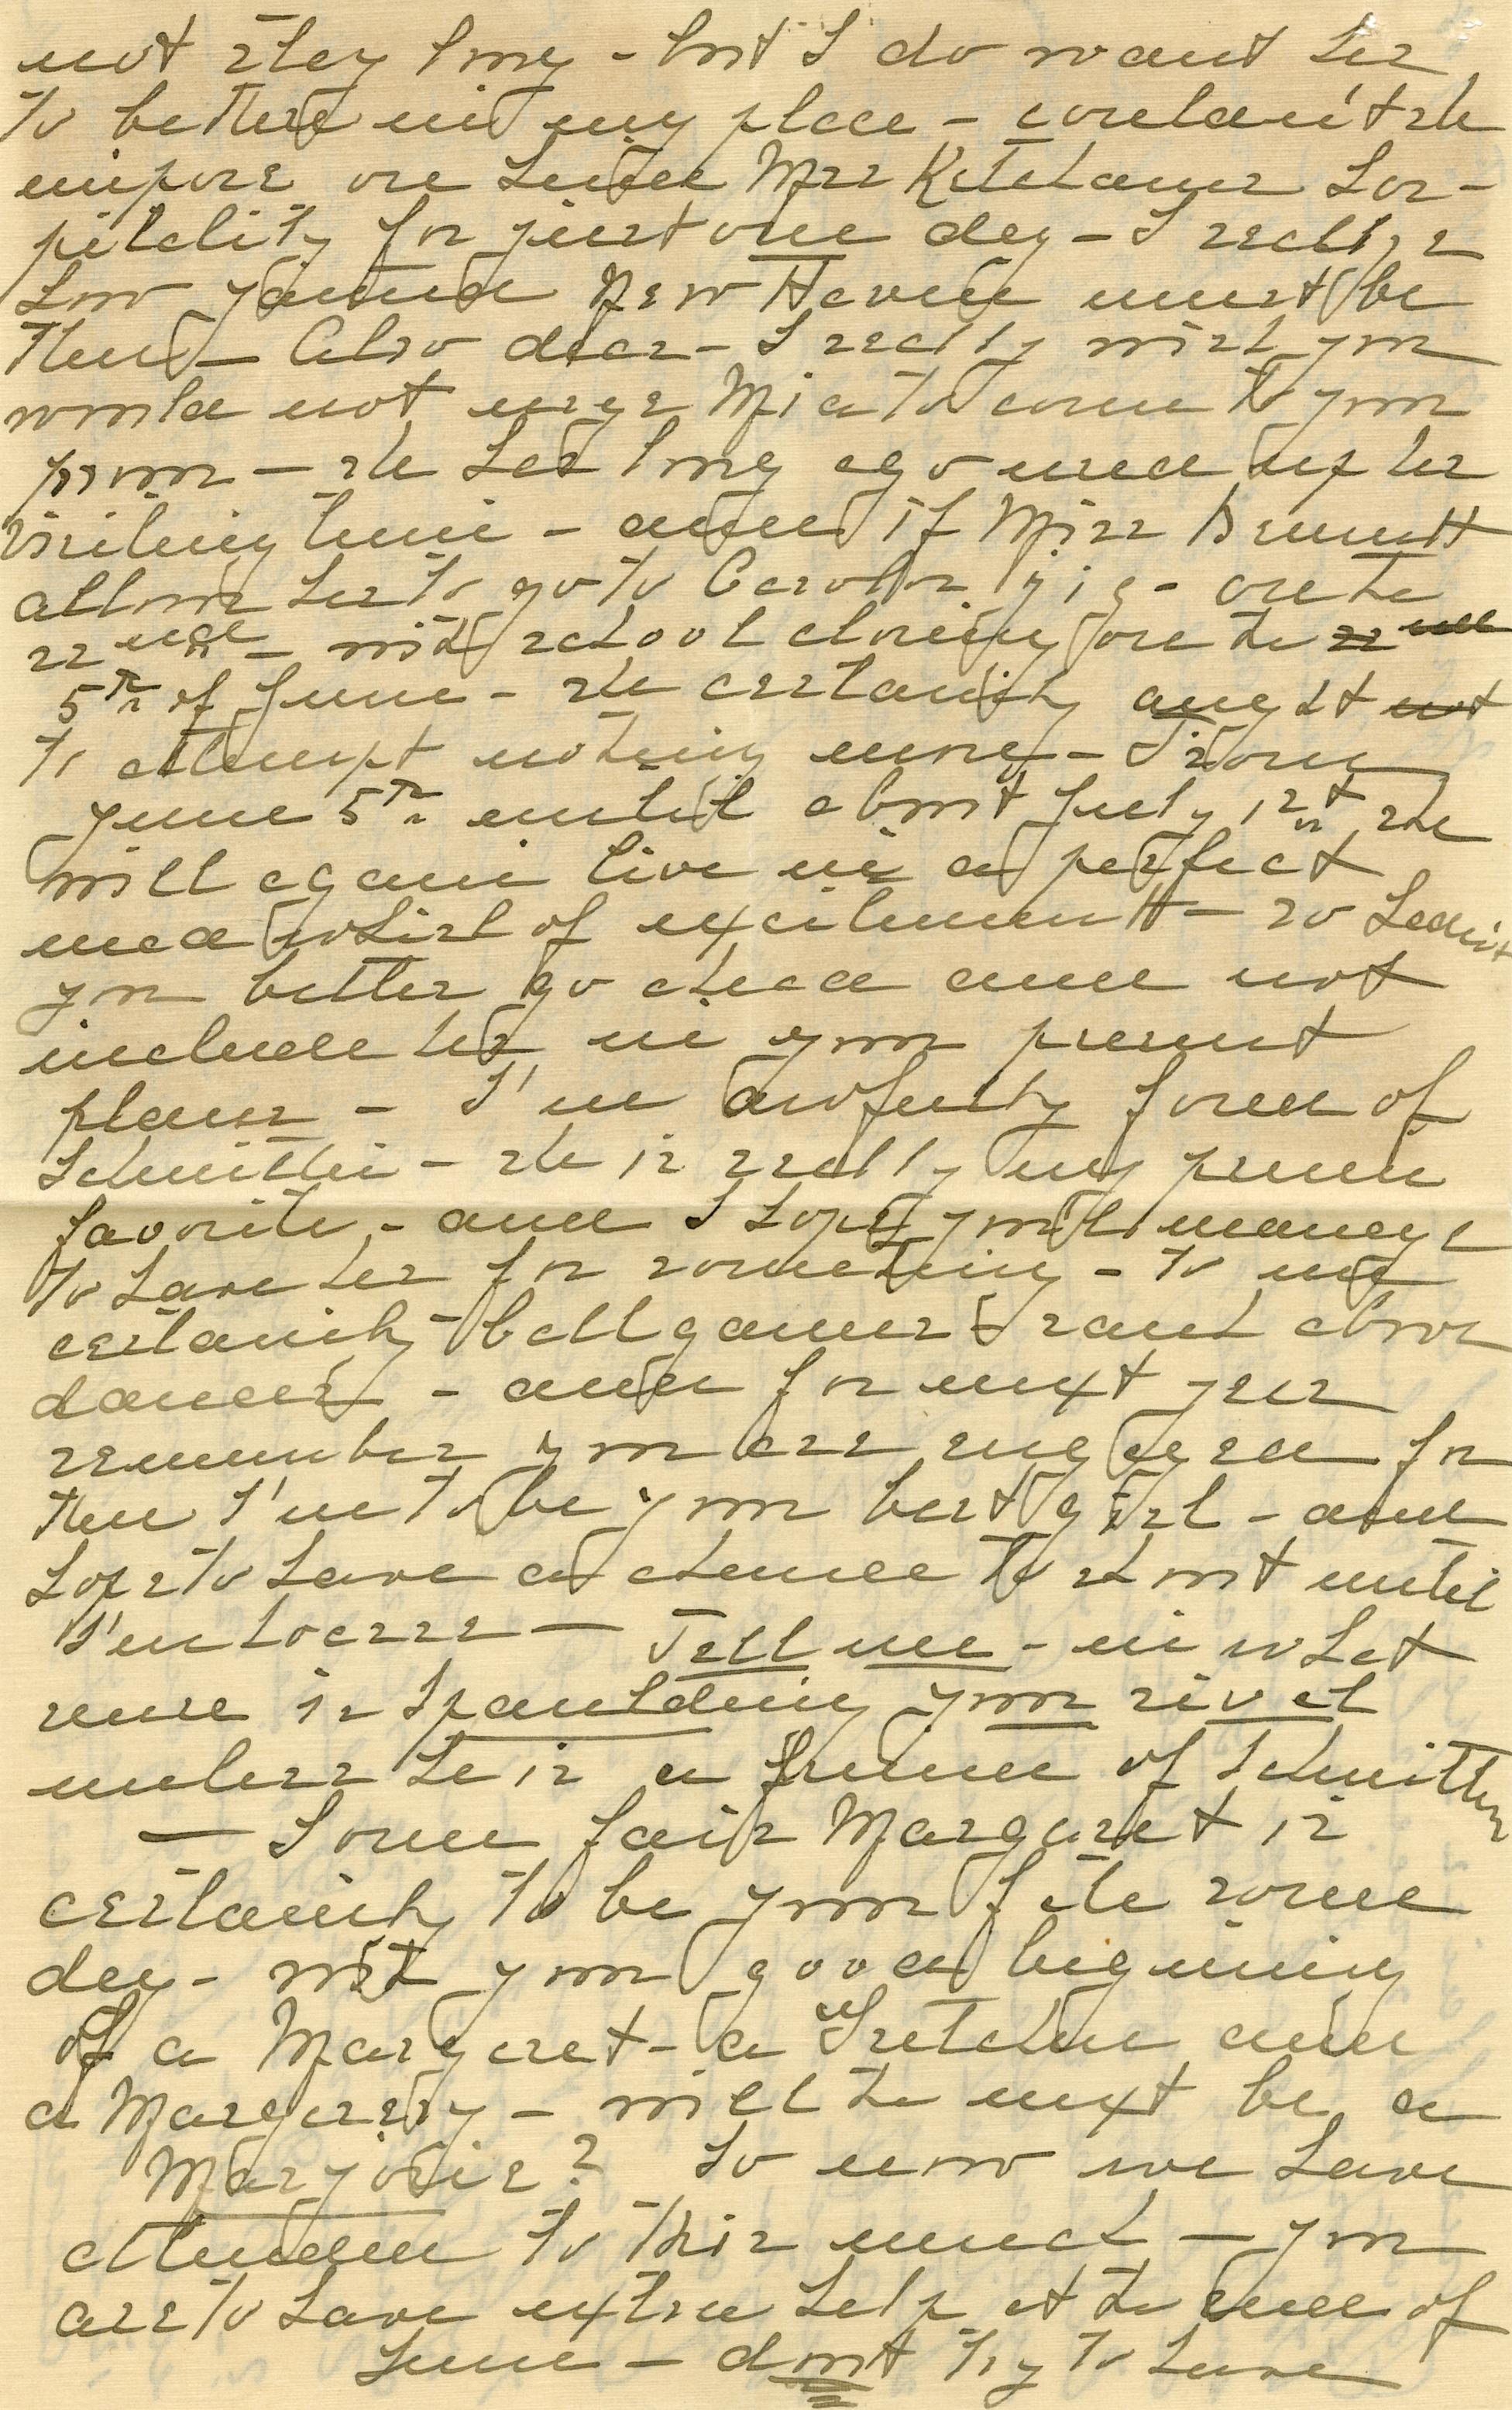 not stay long - but I do want her
to be there in my place - couldn't she
impose on Miss Ketchams hos-
pitality for just one day - I realize
how jammed New Haven must be
then - Also dear - I really wish you
would not urge Mia to come to your
prom - she has long ago used up her
visiting time - and if Miss Bennett
allows her to go to Carolyn on the
22nd - with school closing on the 22nd
5th of June - she certainly aught not
to attempt nothing more - From
June 5th until about July 1st she
will again live in a perfect
mad whirl of excitement - so hadn't
you better go ahead and not
include her in your present
plans - I'm awfully fond of
Schmittie - she is really my prime
favorite - and I hope you'll manage
to have her for something - to me
certainly ball games rank above
dances - and for next year
remember you are engaged for
then I'm to be your best girl - and
hope to have a chance to shout until
I'm hoarse - Tell me - in what
sense is Spaulding your rival
unless he is a friend of Schmitties
- Some fair Margaret is
certainly to be your fate some
day - with your good begining
of a Margaret - a Gretchen and
a Margarety - will the next be a
Maryorie? So now we have
attended to this much - you
are to have extra help at the end of
June - dont try to have